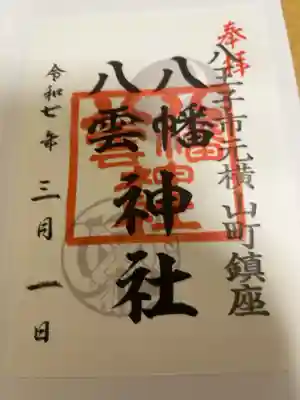 奉拝
八王子市元横山町鎮座
八幡
八雲
神社
令和七年三月一日